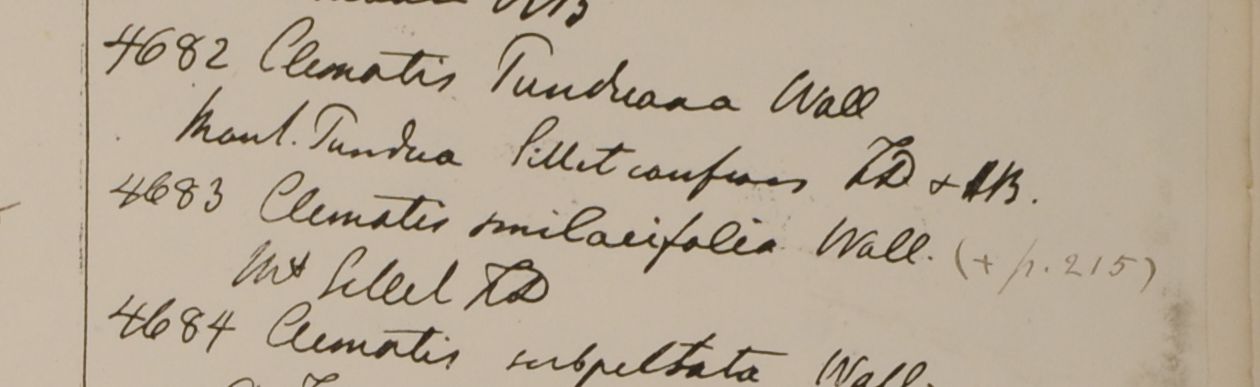 4682 Clematis Tundreana Wall
Mont. Tundua Sillet confines FD + HB.
4683 Clematis smilacifolia Wall. (+ p. 215)
Mt Sillet FD
4684 Clematis subpeltata Wall.